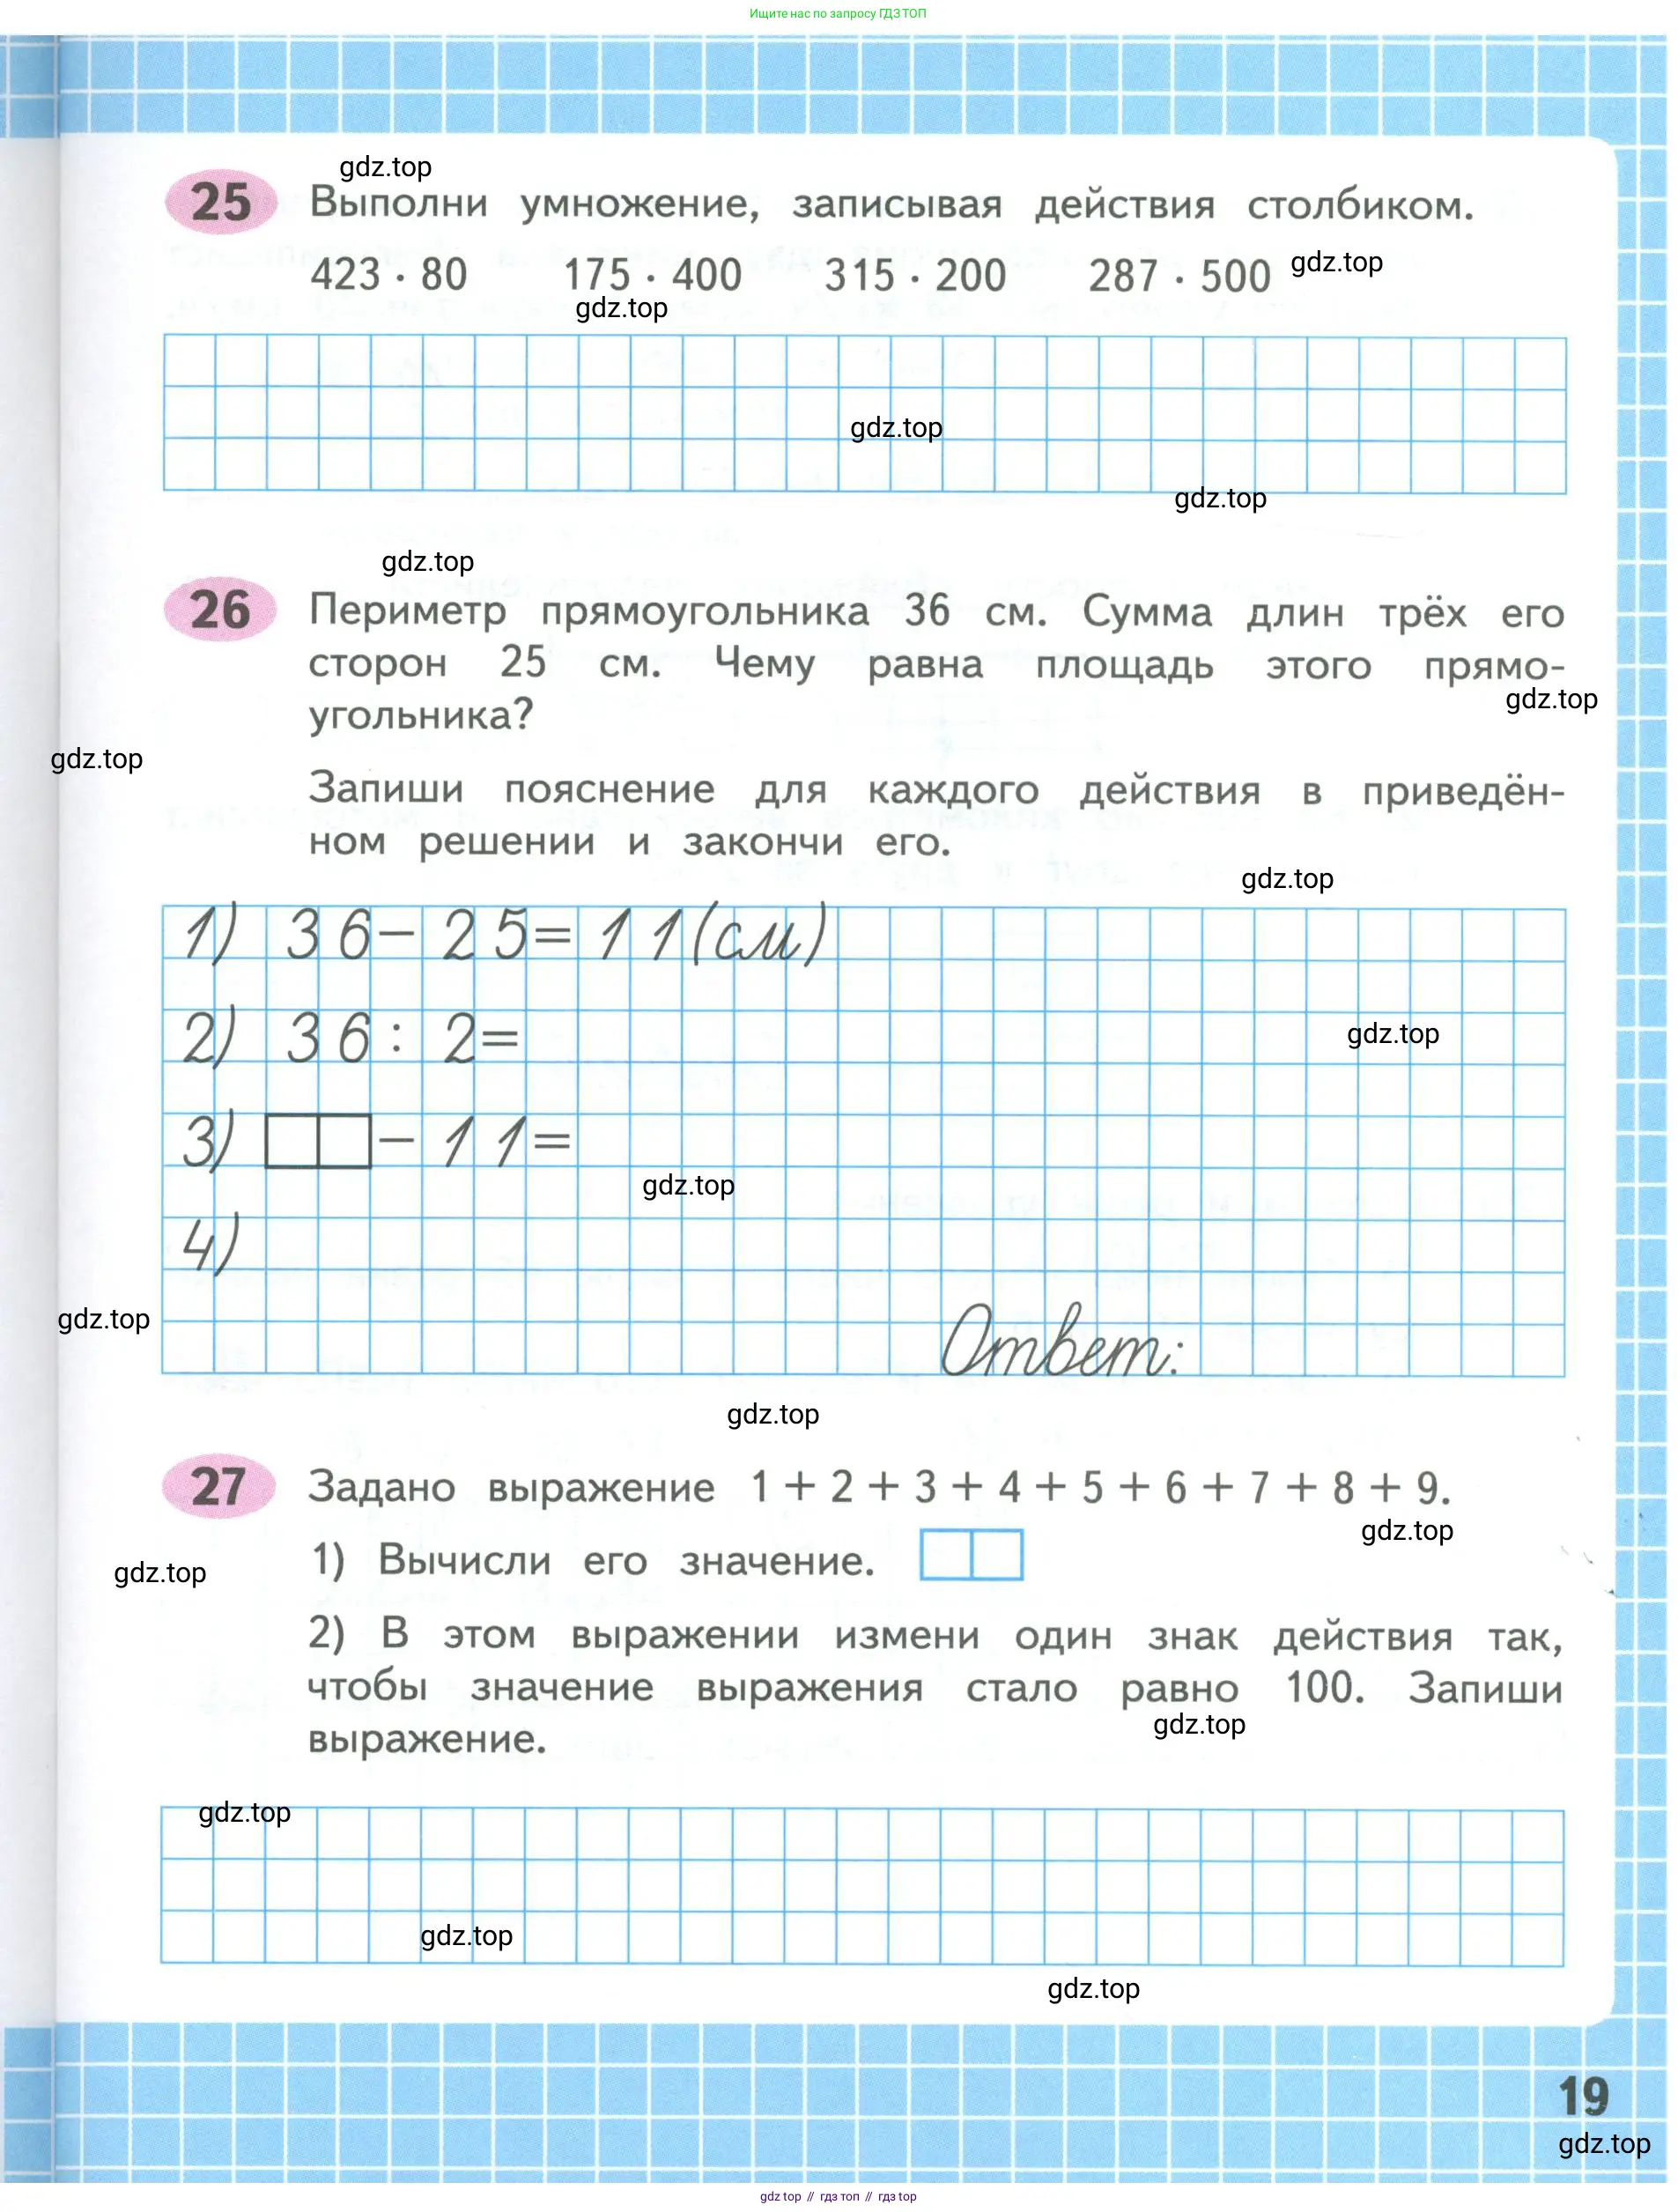 Ищите нас по запросу ГДЗ ТОП
gdz.top
25 Выполни умножение, записывая действия столбиком.
423 · 80 175 · 400 315 · 200 287 · 500 gdz.top
gdz.top
gdz.top
gdz.top
gdz.top
26 Периметр прямоугольника 36 см. Сумма длин трёх его
сторон 25 см. Чему равна площадь этого прямо-
gdz.top
угольника?
gdz.top
Запиши пояснение для каждого действия в приведён-
ном решении и закончи его.
gdz.top
1) 36 - 25 = 11 (см)
2) 36 : 2 =
gdz.top
3) - 11 =
gdz.top
4)
gdz.top
Ответ:
gdz.top
27 Задано выражение 1 + 2 + 3 + 4 + 5 + 6 + 7 + 8 + 9.
gdz.top
1) Вычисли его значение.
gdz.top
2) В этом выражении измени один знак действия так,
чтобы значение выражения стало равно 100. Запиши
gdz.top
выражение.
gdz.top
gdz.top
gdz.top
19
gdz.top
gdz top // гдз топ // гдз top